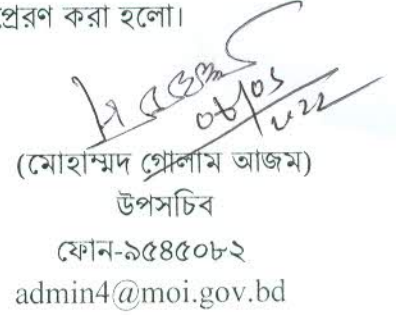 প্রেরণ করা হলো।
(মোহাম্মদ গোলাম আজম)
উপসচিব
ফোন-৯৫৪৫০৮২
admin4@moi.gov.bd